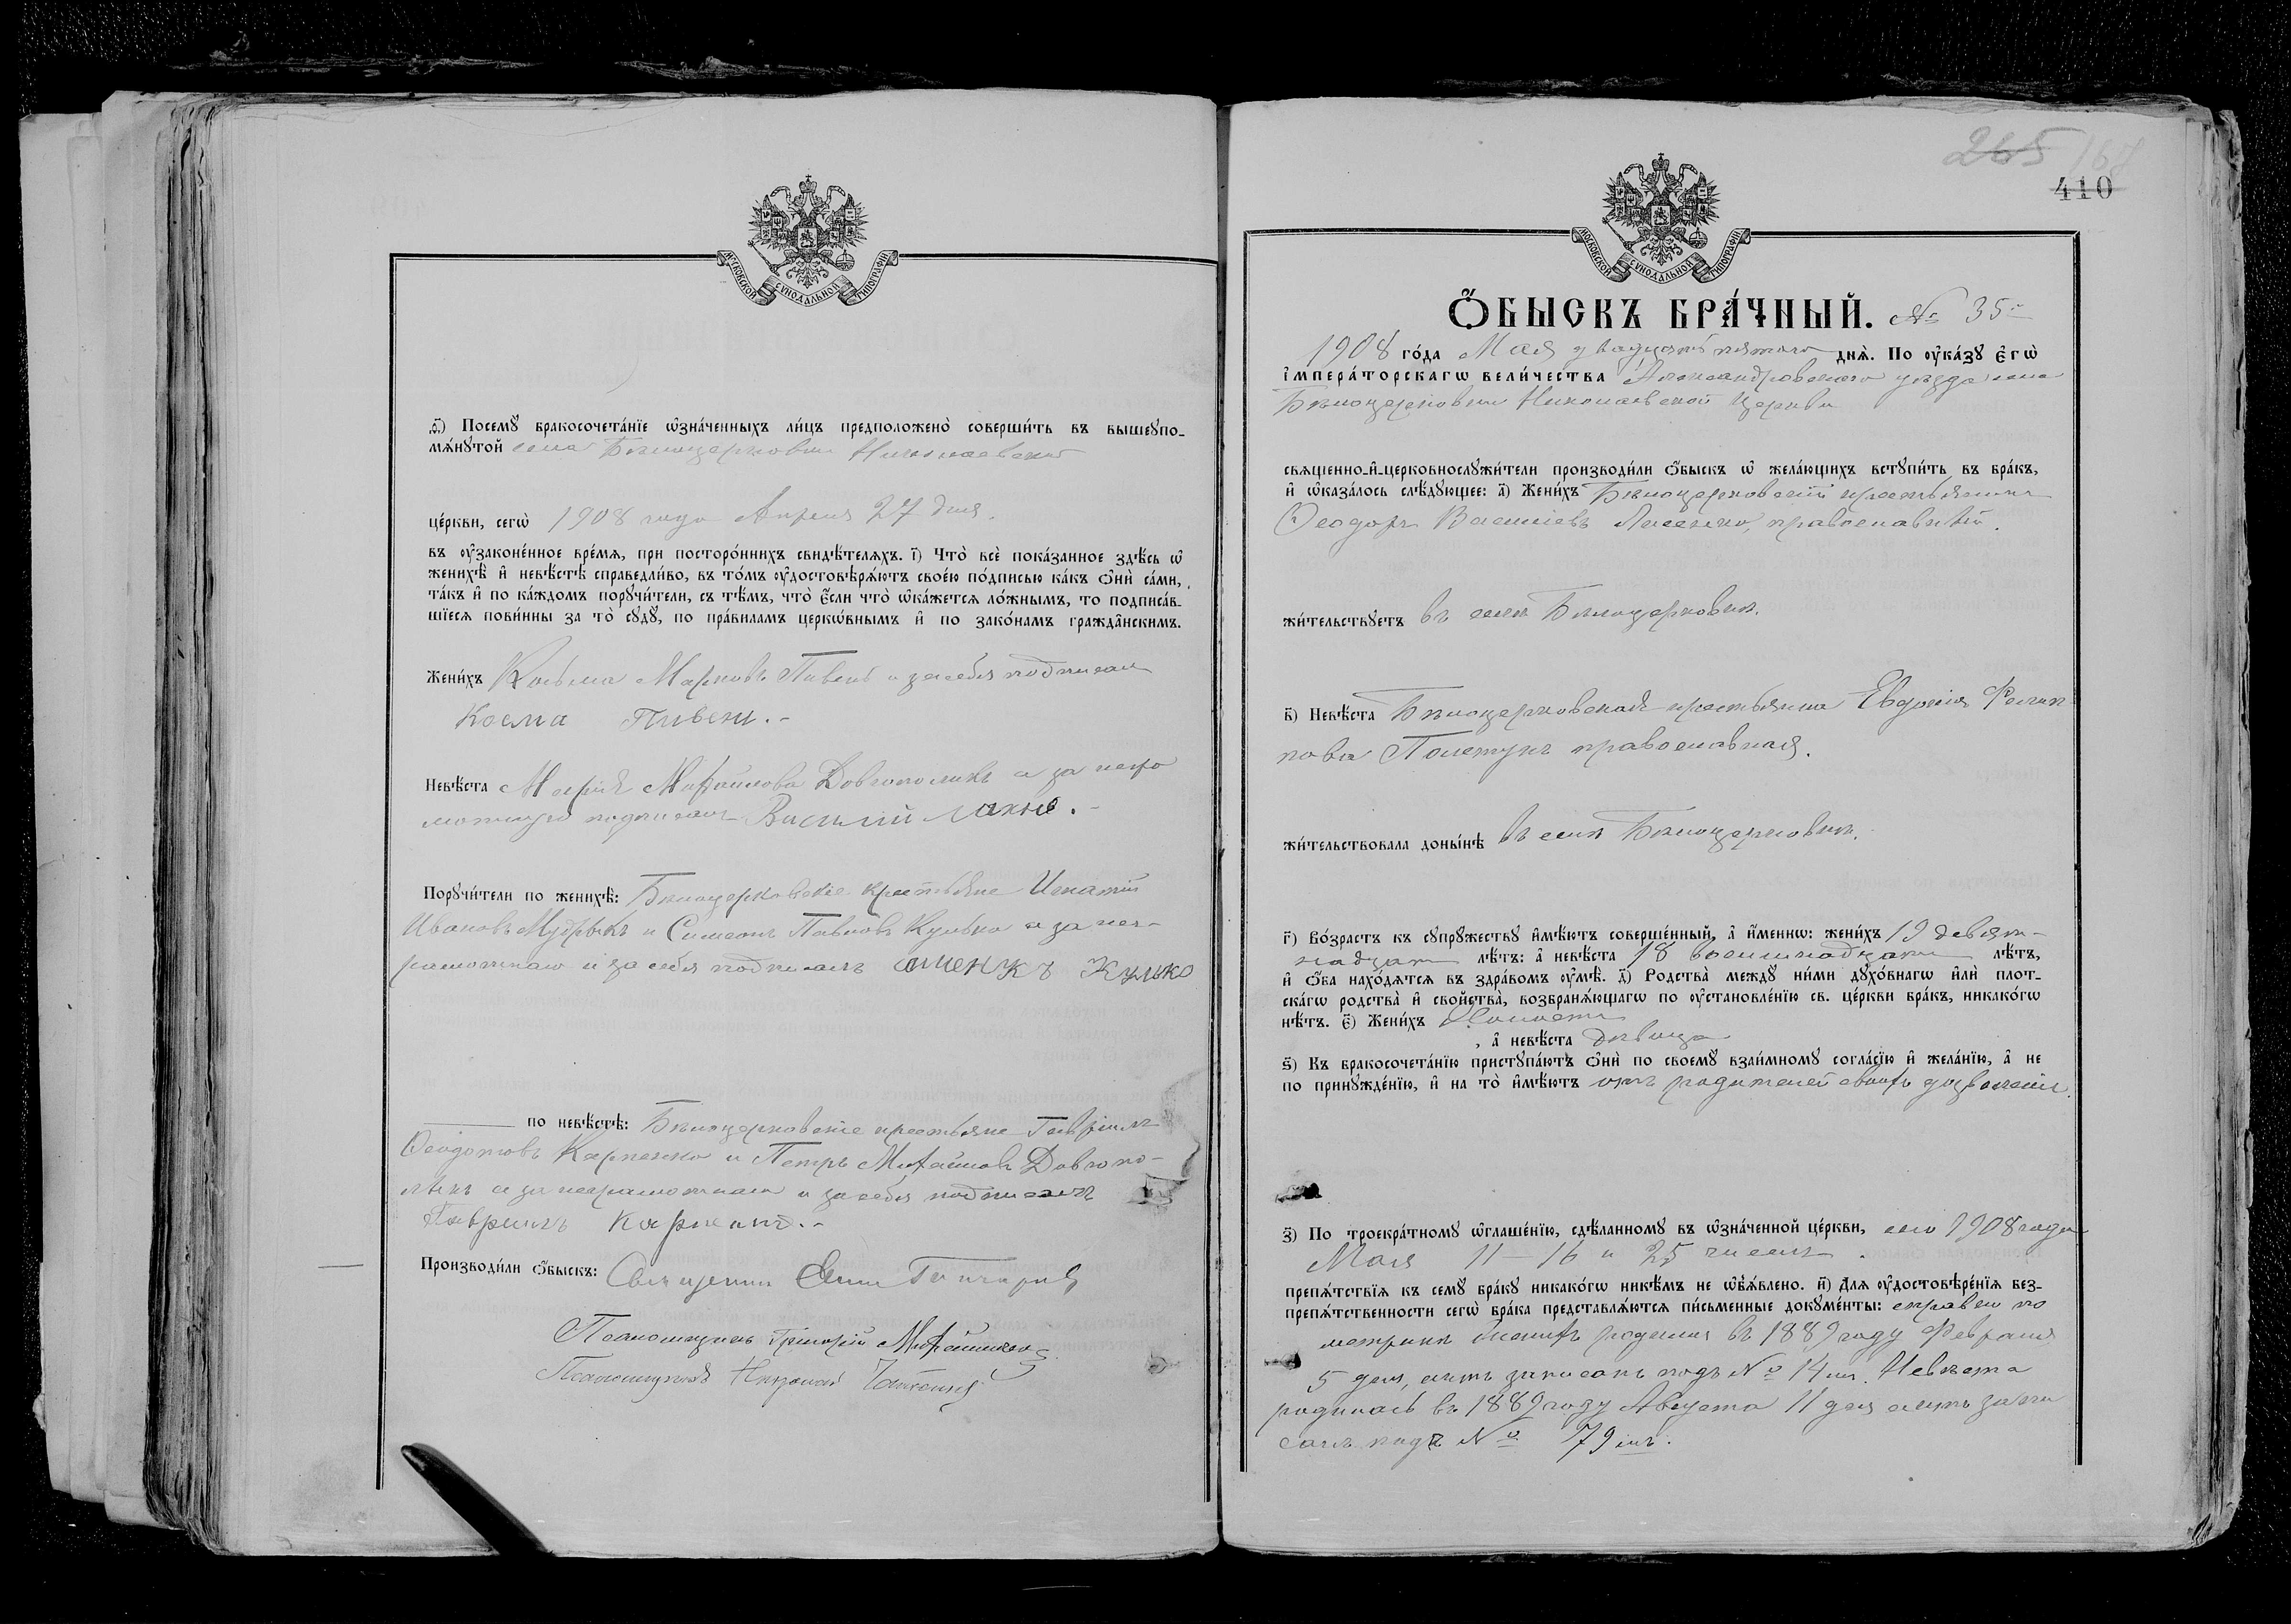 МОСКОВСКОЙ СѴНОДАЛЬНОЙ ТИПОГРАФІИ
ѳ҃) Посемꙋ̀ бракосочета́нїе ѡ҆зна́ченныхъ ли́цъ предположено̀ соверши́ть въ вышеꙋпо-
мѧ́нꙋтой села Бѣлоцерковки Николаевской
це́ркви, сегѡ̀ 1908 года Апреля 27 дня.
въ ᲂу҆законе́нное вре́мѧ, при посторо́ннихъ свидѣ́телѧхъ. і҃) Что̀ всѐ пока́занное здѣ́сь ѡ҆
женихѣ̀ и҆ невѣ́стѣ справедли́во, въ то́мъ ᲂу҆достовѣрѧ́ютъ свое́ю по́дписью ка́къ ѻ҆нѝ са́ми,
та́къ и҆ по ка́ждомъ порꙋчи́тели, съ тѣ́мъ, что̀ є҆́сли что̀ ѡ҆ка́жетсѧ ло́жнымъ, то подписа́в-
шїесѧ пови́нны за то̀ сꙋдꙋ̀, по пра́виламъ церкѡ́внымъ и҆ по зако́намъ гражда̂нскимъ.
Жени́хъ Косьма Марковъ Пивень и за себя подписался
Косма Пивень.-
Невѣ́ста Марія Михайлова Довгополикъ а за негра
мотную подписался Василий Махно.-
Порꙋчи́тели по женихѣ̀: Бѣлоцерковские крестьяне Игнатій
Ивановъ Мудрыкъ и Симеонъ Павловъ Кулько а за нег-
рамотнаго и за себя подписался Сименъ Кулько
по невѣ́стѣ: Бѣлоцерковскіе крестьяне Гавріилъ
Ѳеодотовъ Карпенко и Петръ Михайловъ Довгопо-
ликъ а за неграмотнаго и за себя подписался
Гавриилъ Карпенко.-
Производи́ли ѻ҆́быскъ: Священникъ
Псаломщикъ Григорій Михайловскій
Псаломщикъ Николай
265
410
МОСКОВСКОЙ СѴНОДАЛЬНОЙ ТИПОГРАФІИ
Ѻ҆́БЫСКЪ БРА́ЧНЫЙ. № 35-й
1908 го́да Мая двадцать пятаго днѧ̀. По ᲂу҆ка́зꙋ є҆гѡ̀
і҆мпера́торскагѡ вели́чества Александровскаго уѣзда села
Бѣлоцерковки Николаевской церкви
свѧще́нно-и҆-церковнослꙋжи́тели производи́ли ѻ҆́быскъ ѡ҆ жела́ющихъ встꙋпи́ть въ бра́къ,
и҆ ѡ҆каза́лось слѣ́дꙋющее: а҃) Жени́хъ Бѣлоцерковскій крестьянинъ
Ѳеодоръ Васильевъ Лисенко, православный.
жи́тельствꙋетъ въ селѣ Бѣлоцерковкѣ.
в҃) Невѣ́ста Бѣлоцерковская крестьянка Евдокія Филип
пова Полетукъ православная.
жи́тельствовала доны́нѣ въ селѣ Бѣлоцерковкѣ.
г҃) Во́зрастъ къ сꙋпрꙋ́жествꙋ и҆мѣ́ютъ соверше́нный, а҆ и҆́меннѡ: жени́хъ 19 девят-
надцать лѣ́тъ: а҆ невѣ́ста 18 восемнадцать лѣ́тъ,
и҆ ѻ҆́ба нахо́дѧтсѧ въ здра́вомъ ᲂу҆мѣ̀. д҃) Родства̀ междꙋ̀ ни́ми дꙋхо́внагѡ и҆лѝ плот-
ска́гѡ родства̀ и҆ сво́йства̀, возбранѧ́ющагѡ по ᲂу҆становле́нїю св. це́ркви бра́къ, никако́гѡ
нѣ́тъ. є҃) Жени́хъ Холостъ
, а҆ невѣ́ста дѣвица
ѕ҃) Къ бракосочета́нїю пристꙋпа́ютъ ѻ҆нѝ по своемꙋ̀ взаи́мномꙋ согла́сїю и҆ жела́нїю, а҆ не
по принꙋжде́нїю, и҆ на то̀ и҆мѣ́ютъ отъ родителей своихъ дозволеніе.
з҃) По троекра́тномꙋ ѡ҆глаше́нїю, сдѣ́ланномꙋ въ ѡ҆зна́ченной це́ркви, сего 1908 года
Мая 11 - 16 и 25 чиселъ.
препѧ́тствїѧ къ семꙋ̀ бра́кꙋ никако́гѡ никѣ́мъ не ѡ҆б̾ѧ́влено. и҃) Длѧ ᲂу҆достовѣре́нїѧ без-
препѧ́тственности сегѡ̀ бра́ка представлѧ́ютсѧ пи́сьменные докꙋме́нты: справка по
метрикѣ женихъ родился въ 1889 году Февраля
5 дня, актъ записанъ подъ № 14 мъ. Невѣста
родилась въ 1889 году Августа 11 дня актъ запи
санъ подъ № 79 мъ.